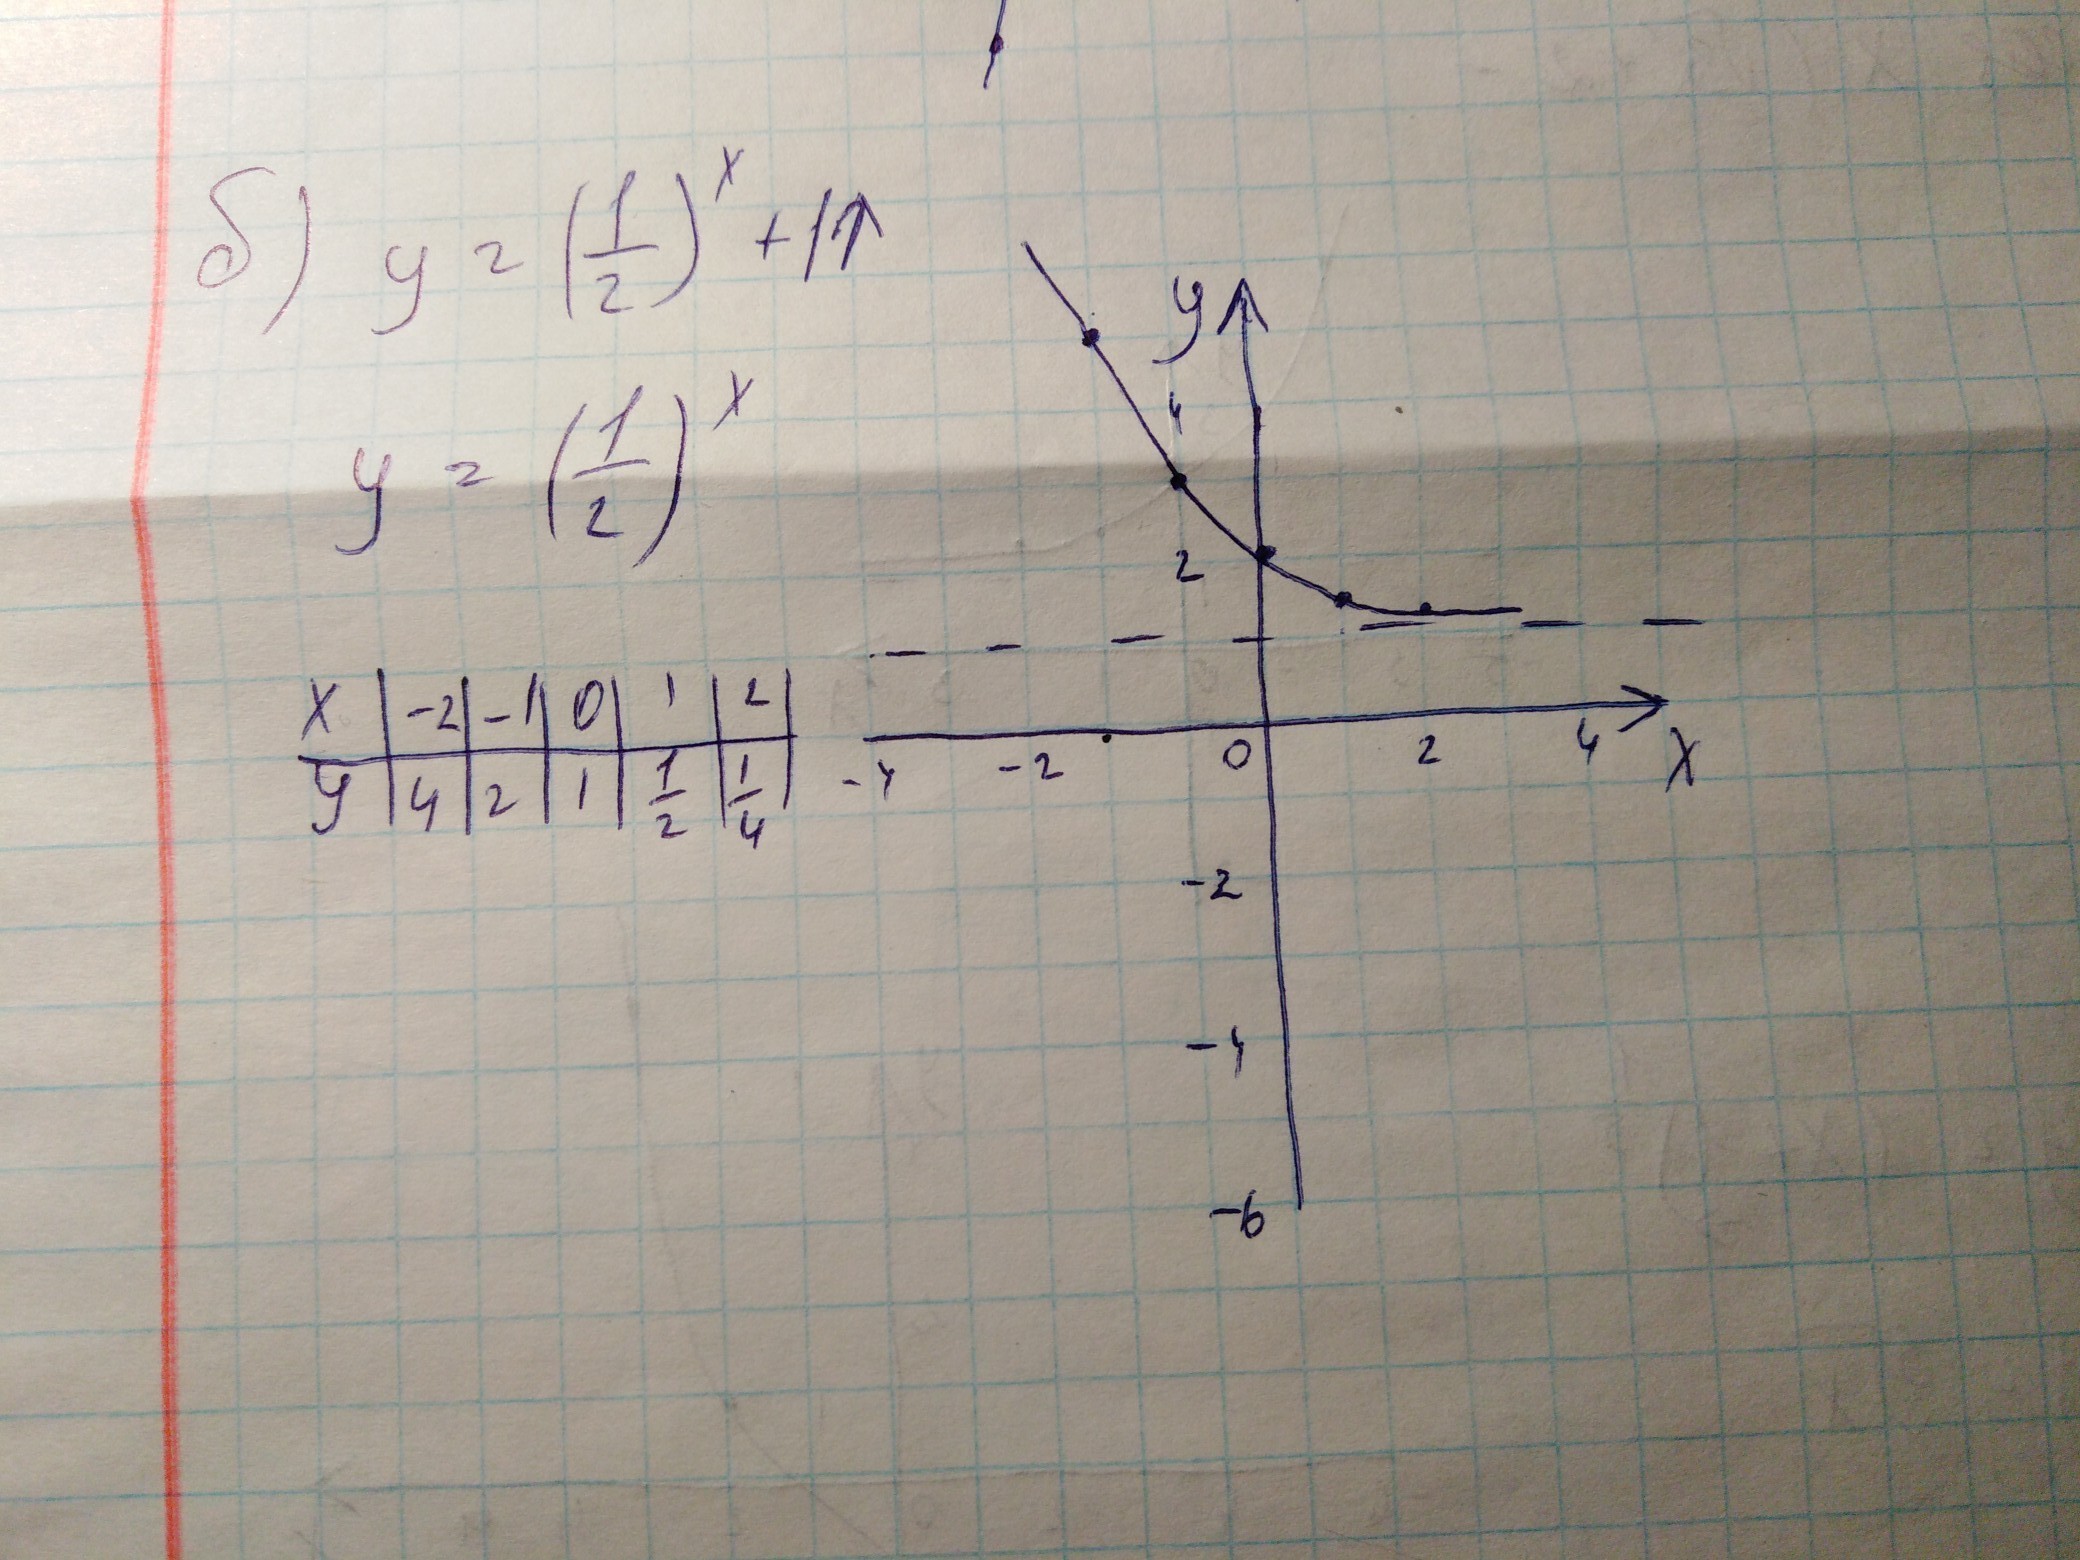 б) y = (1/2)^x + 1↑
y = (1/2)^x
x | -2 | -1 | 0 | 1 | 2
y | 4 | 2 | 1 | 1/2 | 1/4
y
4
2
-4 -2 0 2 4 x
-2
-4
-6